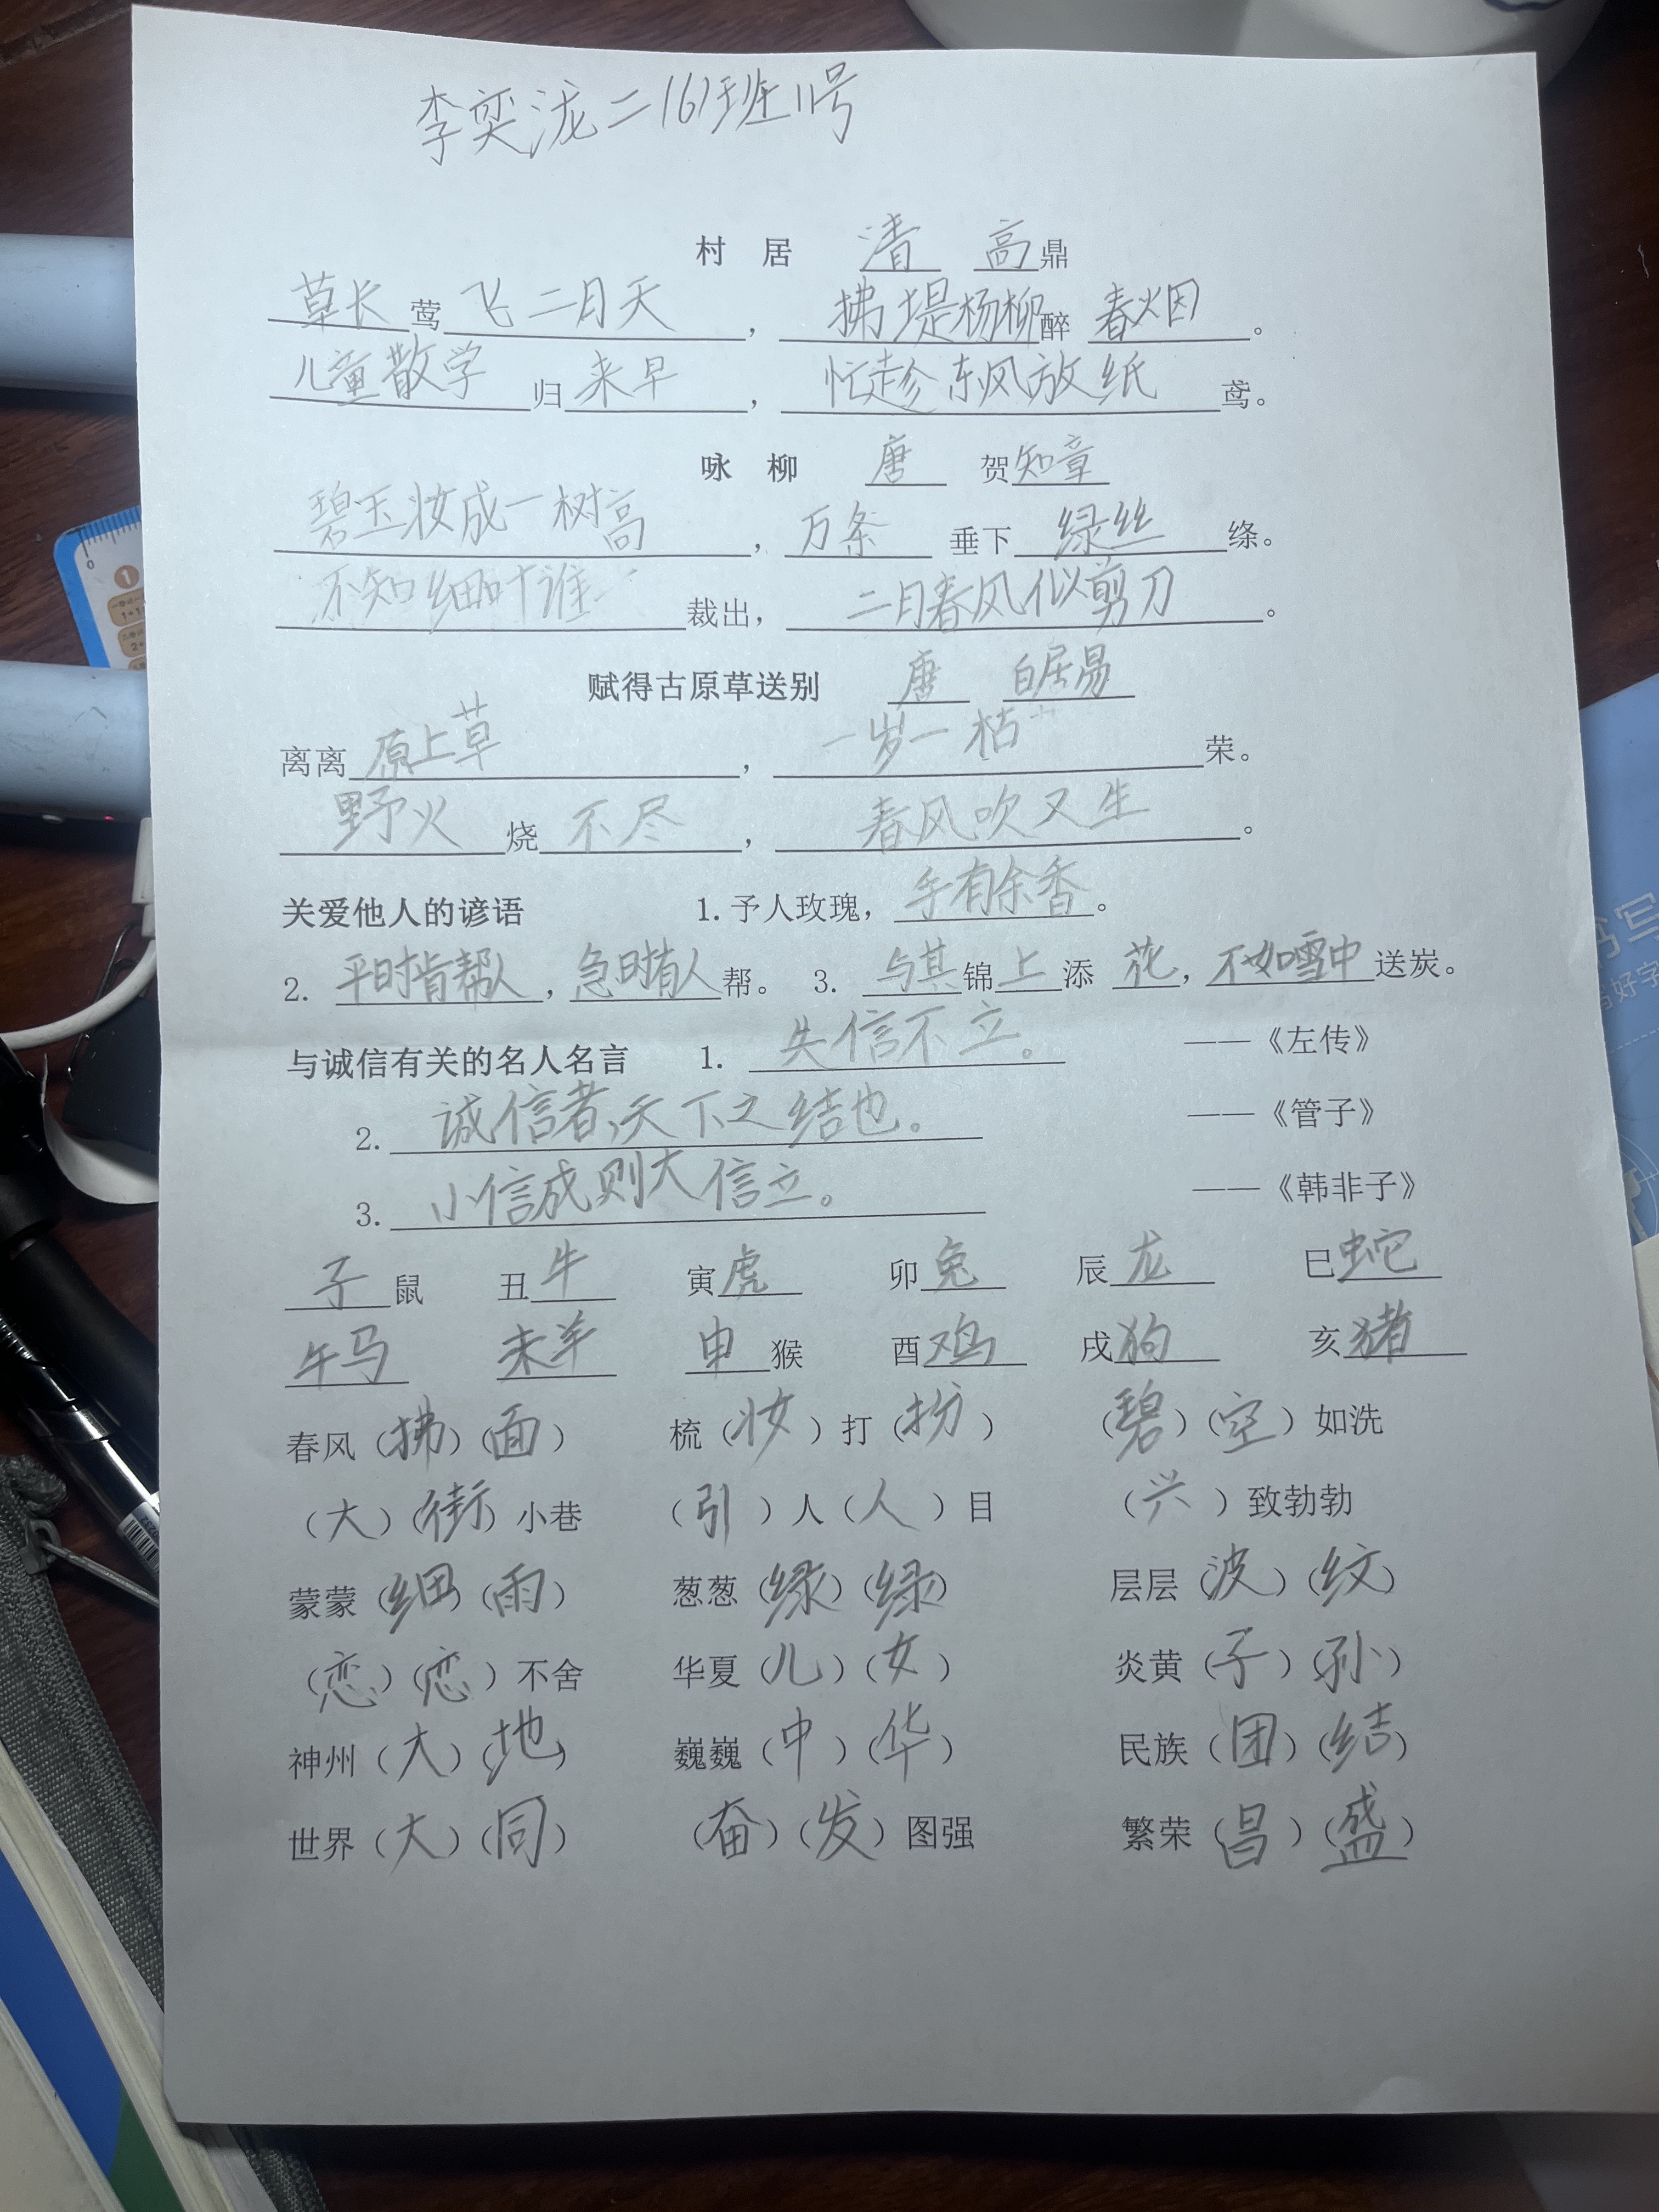 李奕泷二(6)班11号
村 居 清 高鼎
草长莺飞二月天，拂堤杨柳醉春烟。
儿童散学归来早，忙趁东风放纸鸢。
咏 柳 唐 贺知章
碧玉妆成一树高，万条垂下绿丝绦。
不知细叶谁裁出，二月春风似剪刀。
赋得古原草送别 唐 白居易
离离原上草，一岁一枯荣。
野火烧不尽，春风吹又生。
关爱他人的谚语 1.予人玫瑰，手有余香。
2. 平时肯帮人，急时有人帮。 3. 与其锦上添花，不如雪中送炭。
与诚信有关的名人名言 1. 失信不立。 ——《左传》
2. 诚信者，天下之结也。 ——《管子》
3. 小信成则大信立。 ——《韩非子》
子鼠 丑牛 寅虎 卯兔 辰龙 巳蛇
午马 未羊 申猴 酉鸡 戌狗 亥猪
春风（拂）（面） 梳（妆）打（扮） （碧）（空）如洗
（大）（街）小巷 （引）人（人）目 （兴）致勃勃
蒙蒙（细）（雨） 葱葱（绿）（绿） 层层（波）（纹）
（恋）（恋）不舍 华夏（儿）（女） 炎黄（子）（孙）
神州（大）（地） 巍巍（中）（华） 民族（团）（结）
世界（大）（同） （奋）（发）图强 繁荣（昌）（盛）